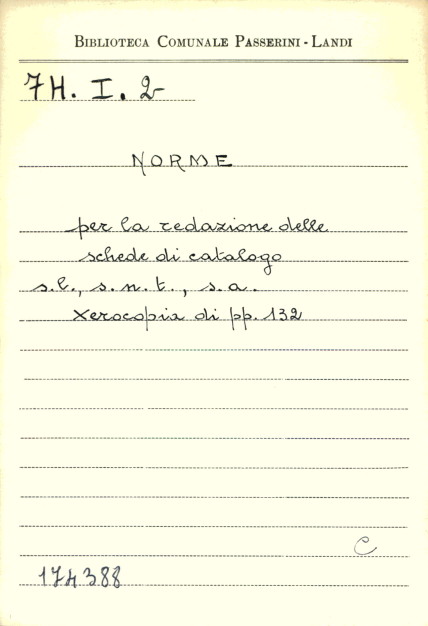 BIBLIOTECA COMUNALE PASSERINI - LANDI
7H. I. 2
NORME
per la redazione delle
schede di catalogo
s.l., s.n.t., s.a.
Xerocopia di pp. 132
C
174388